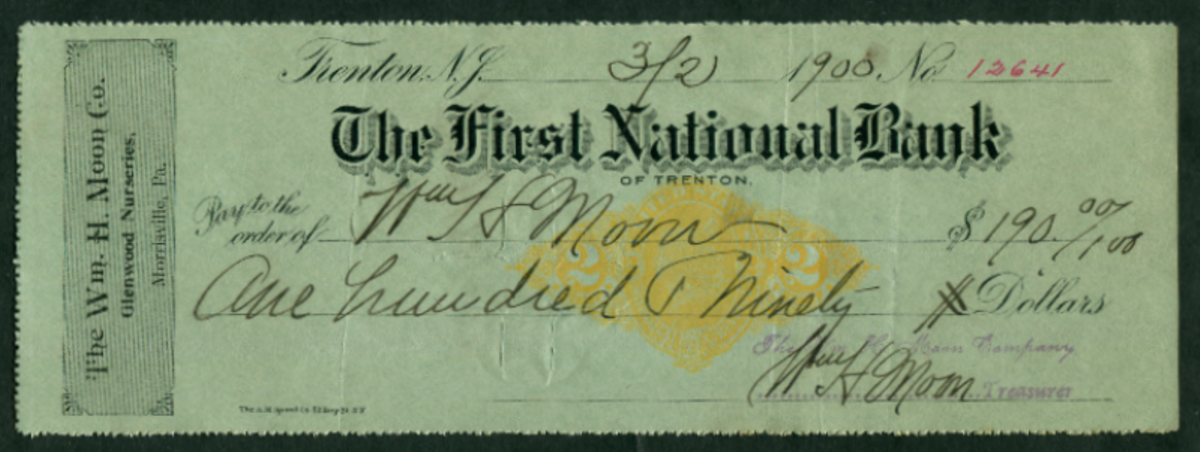 The Wm. H. Moon Co.
Glenwood Nurseries,
Morrisville, Pa.
Trenton, N.J. 3/2 1900. No 12641
The First National Bank
OF TRENTON.
Pay to the
order of Wm H Moon $ 190.00/100
2 2
One hundred & Ninety Dollars
The Wm H. Moon Company
Wm H Moon Treasurer